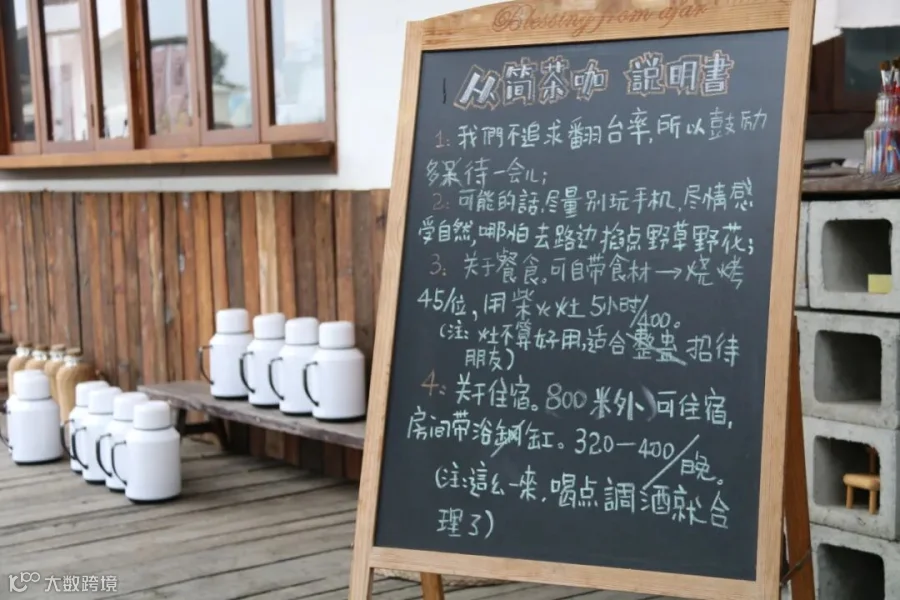 Blessing from ajar
从简茶咖 説明書
1: 我們不追求翻台率,所以鼓励
多呆待一会儿;
2: 可能的話,尽量别玩手机,尽情感
受自然,哪怕去路边掐点野草野花;
3: 关于餐食。可自带食材→烧烤
45/位,用柴火灶5小时/400。
(注:灶不算好用,适合整蛊招待
朋友)
4: 关于住宿。800米外可住宿,
房间带浴缸。320—400/晚。
(注:這么一来,喝点調酒就合
理了)
大数跨境